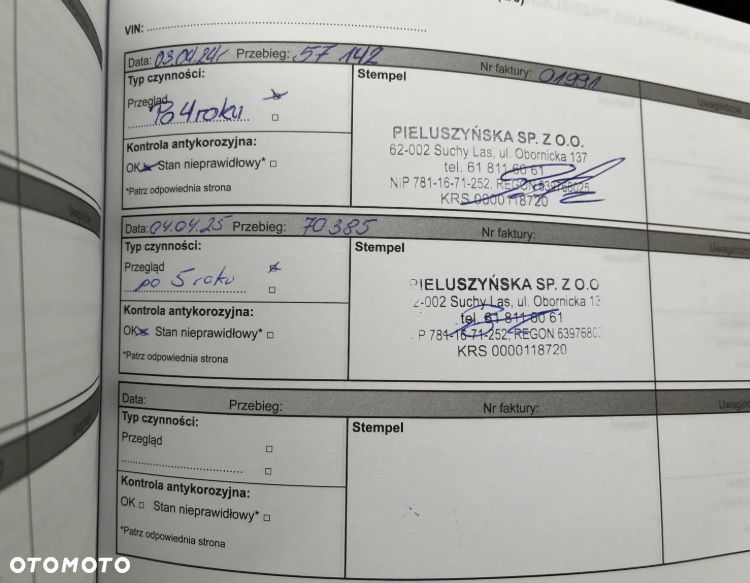 VIN:
Data: 03.04.24r Przebieg: 57 142 Nr faktury: 01991
Typ czynności:
Stempel
Przegląd
Po 4 roku
Kontrola antykorozyjna:
OK Stan nieprawidłowy*
*Patrz odpowiednia strona
PIELUSZYŃSKA SP. Z O.O.
62-002 Suchy Las, ul. Obornicka 137
tel. 61 811 60 61
NIP 781-16-71-252, REGON 639768025
KRS 0000118720
Data: 04.04.25 Przebieg: 70385 Nr faktury:
Typ czynności:
Stempel
Przegląd
po 5 roku
Kontrola antykorozyjna:
OK Stan nieprawidłowy*
*Patrz odpowiednia strona
PIELUSZYŃSKA SP. Z O.O
2-002 Suchy Las, ul. Obornicka 13
tel. 61 811 60 61
P 781-16-71-252, REGON 6397680
KRS 0000118720
Data: Przebieg: Nr faktury:
Typ czynności:
Stempel
Przegląd
Kontrola antykorozyjna:
OK Stan nieprawidłowy*
*Patrz odpowiednia strona
OTOMOTO